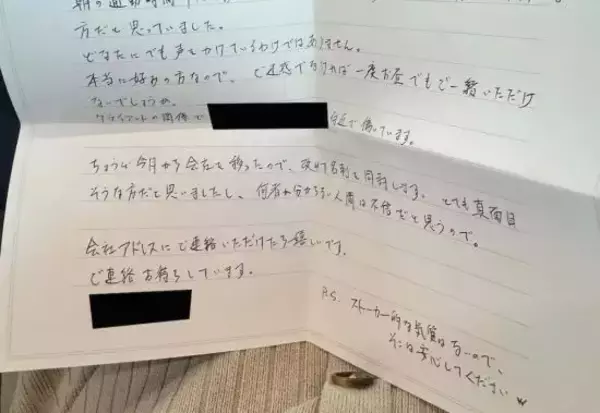 朝の通勤時間
方だと思っていました。
どなたにでも声をかけているわけではありません。
本当に好みの方なので、ご迷惑でなければ一度お昼でもご一緒いただけ
ないでしょうか。
クライアントの関係で 付近で働いています。
ちょうど今月から会社を移ったので、改めて名刺を同封します。とても真面目
そうな方だと思いましたし、何者か分からない人間は不信だと思うので。
会社アドレスにご連絡いただけたら嬉しいです。
ご連絡お待ちしています。
P.S. ストーカー的な気質はないので、
そこは安心してください w